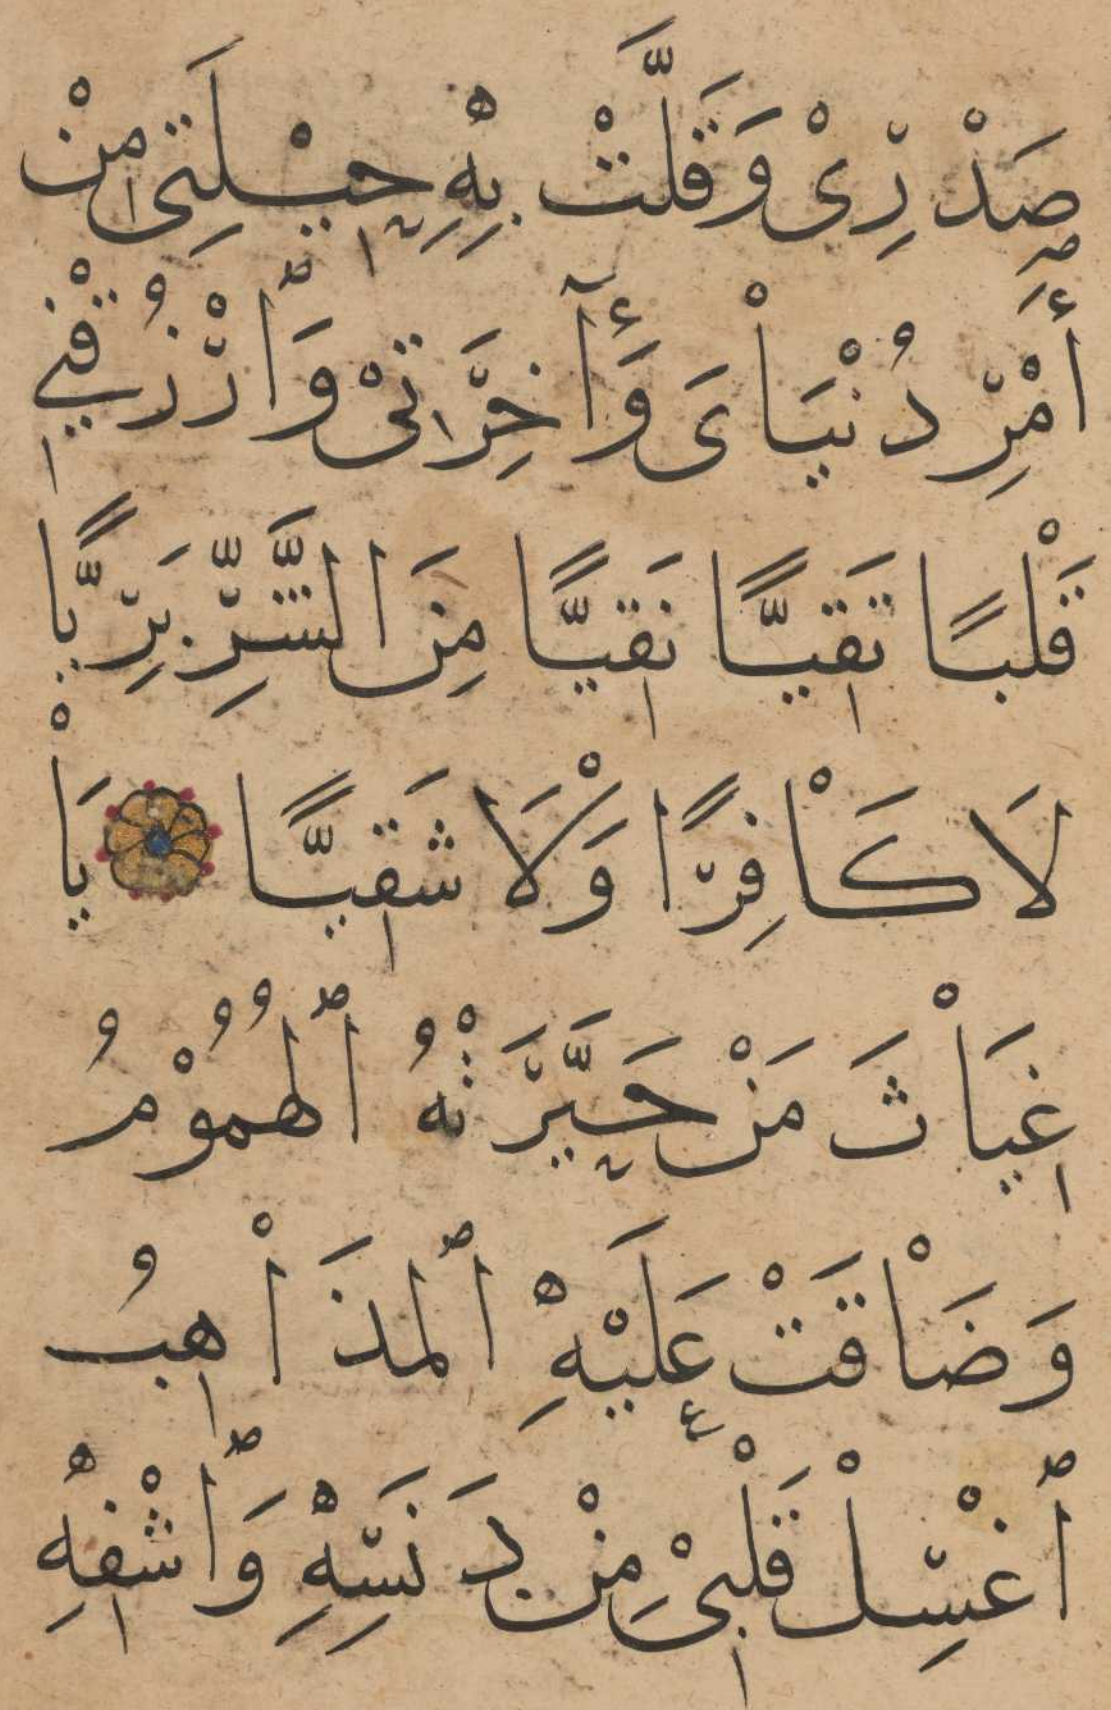 صَدْرِىْ وَقَلَّتْ بِهِ حِيْلَتِى مِنْ
أَمْرِ دُنْيَاْىَ وَآخِرَتِىْ وَاْرْزُقْنِى
قَلْبًا تَقِيًّا نَقِيًّا مِنَ الشَّرِّ بَرِيًّا
لَا كَاْفِرًا وَلَاْ شَقِيًّا يَاْ
غِيَاْثَ مَنْ حَيَّرَتْهُ ٱلهُمُوْمُ
وَضَاْقَتْ عَلَيْهِ ٱلمَذَاْهِبُ
ٱغْسِلْ قَلْبِىْ مِنْ دَنَسِهِ وَٱشْفِهِ